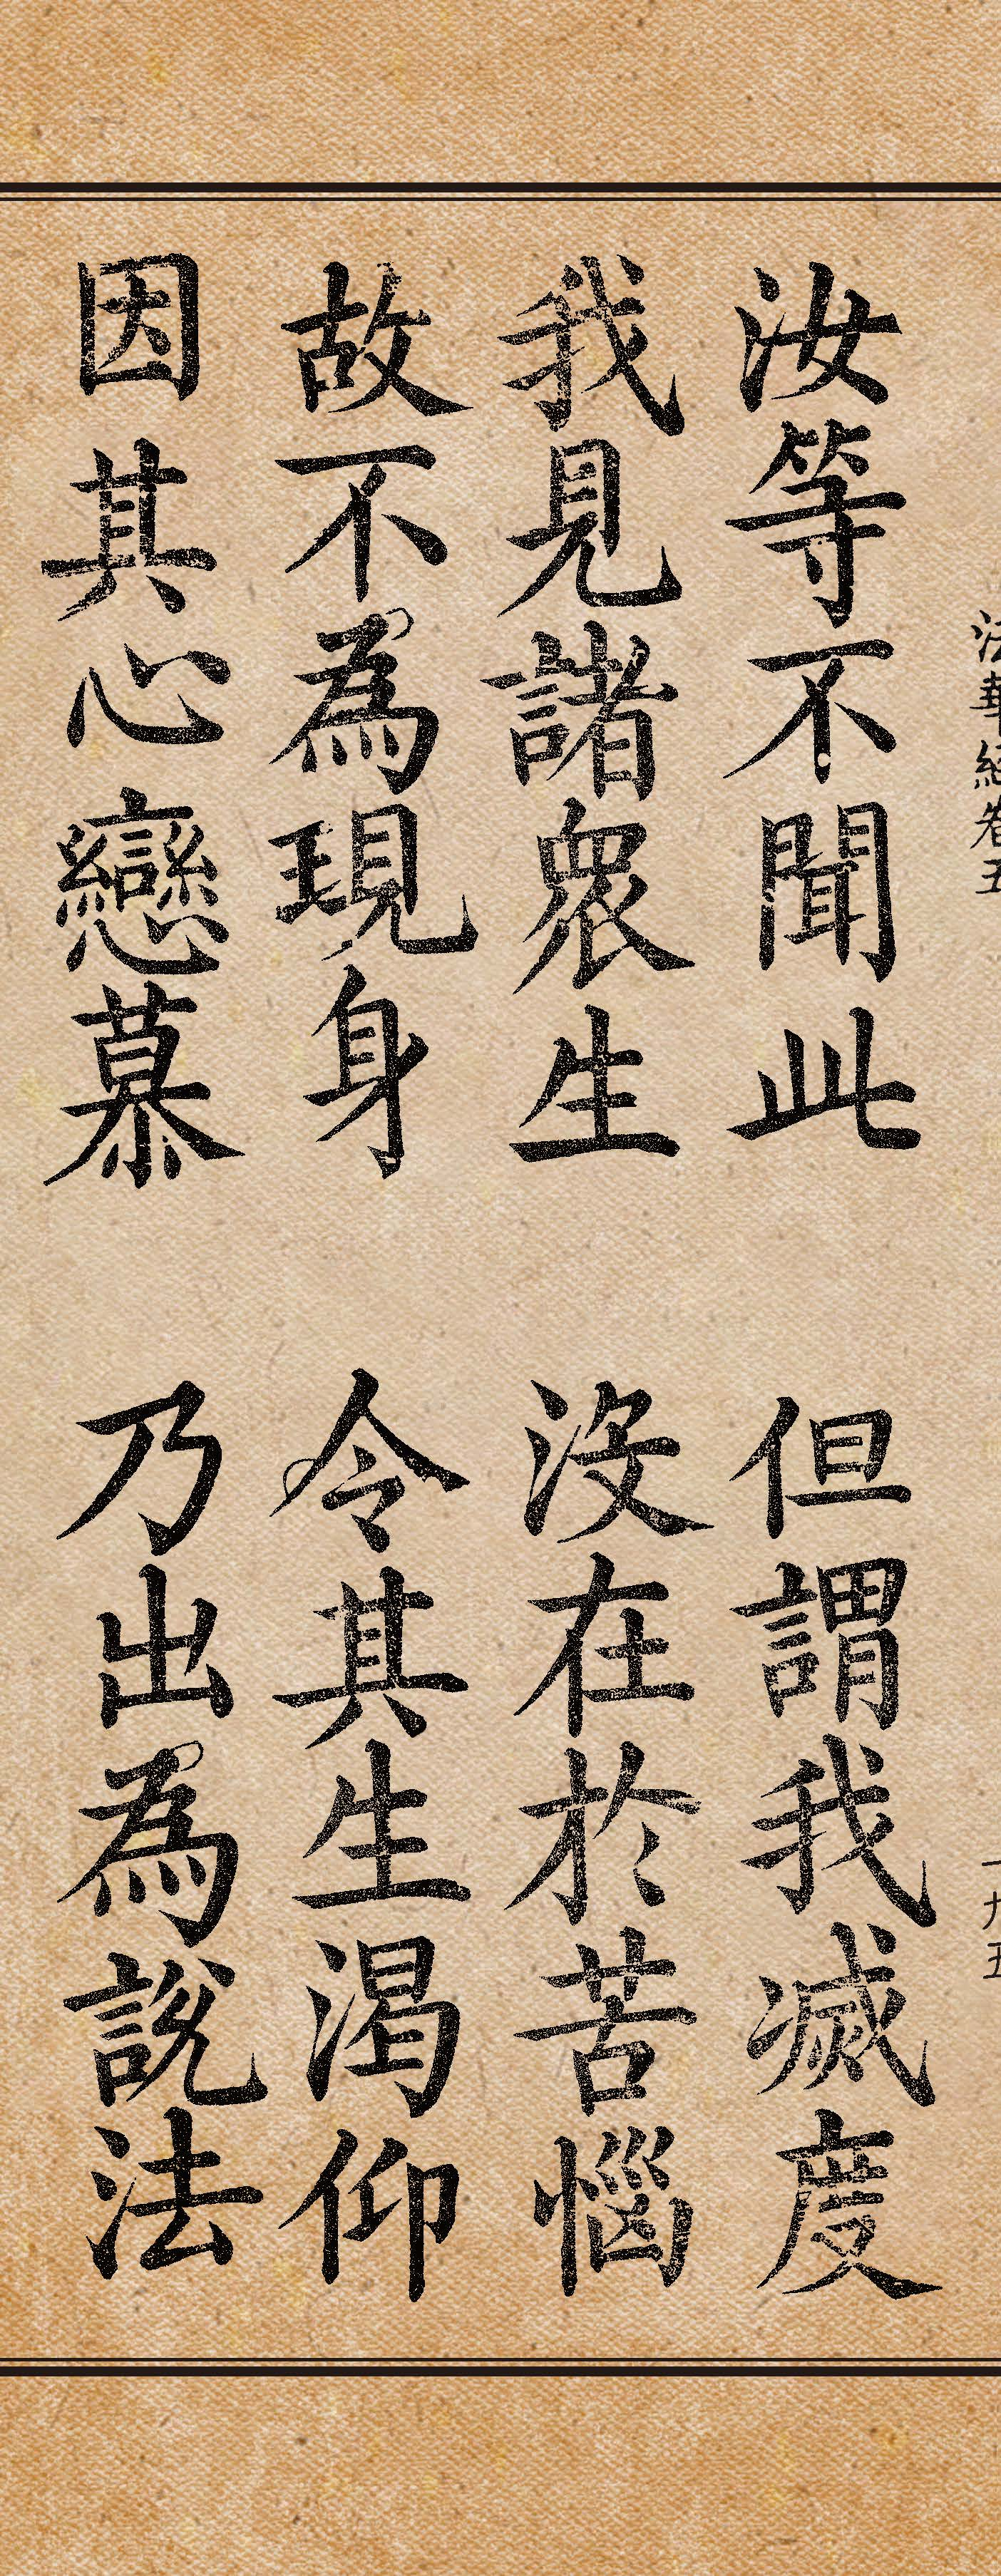 法華經卷五 一九五
汝等不聞此 但謂我滅度
我見諸衆生 沒在於苦惱
故不為現身 令其生渴仰
因其心戀慕 乃出為說法